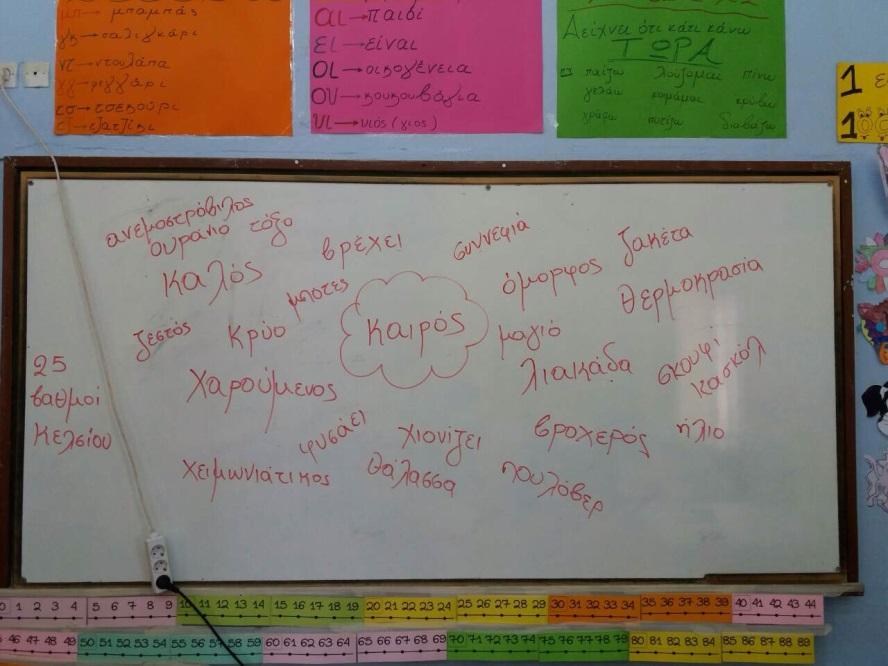 μπ→μπαμπάς
γκ→σαλιγκάρι
ντ→ντουλάπα
γγ→φεγγάρι
τσ→τσεκούρι
τζ→τζατζίκι
αι→παιδί
ει→είναι
οι→οικογένεια
ου→κουκουβάγια
υι→υιός (γιος)
Δείχνει ότι κάτι κάνω
ΤΩΡΑ
παίζω λούζομαι πίνω
γελάω κοιμάμαι κρύβω
γράφω ποτίζω διαβάζω
1
10
ανεμοστρόβιλος
ουράνιο τόξο
βρέχει
συννεφιά
ζακέτα
καλός
μποτες
όμορφος
θερμοκρασία
ζεστός
κρύο
καιρός
μαγιό
25
βαθμοί
κελσίου
χαρούμενος
λιακάδα
σκουφί
κασκόλ
φυσάει
χιονίζει
βροχερός
ήλιο
χειμωνιάτικος
θάλασσα
πουλόβερ
0 1 2 3 4 5 6 7 8 9 10 11 12 13 14 15 16 17 18 19 20 21 22 23 24 25 26 27 28 29 30 31 32 33 34 35 36 37 38 39 40 41 42 43 44
45 46 47 48 49 50 51 52 53 54 55 56 57 58 59 60 61 62 63 64 65 66 67 68 69 70 71 72 73 74 75 76 77 78 79 80 81 82 83 84 85 86 87 88 89